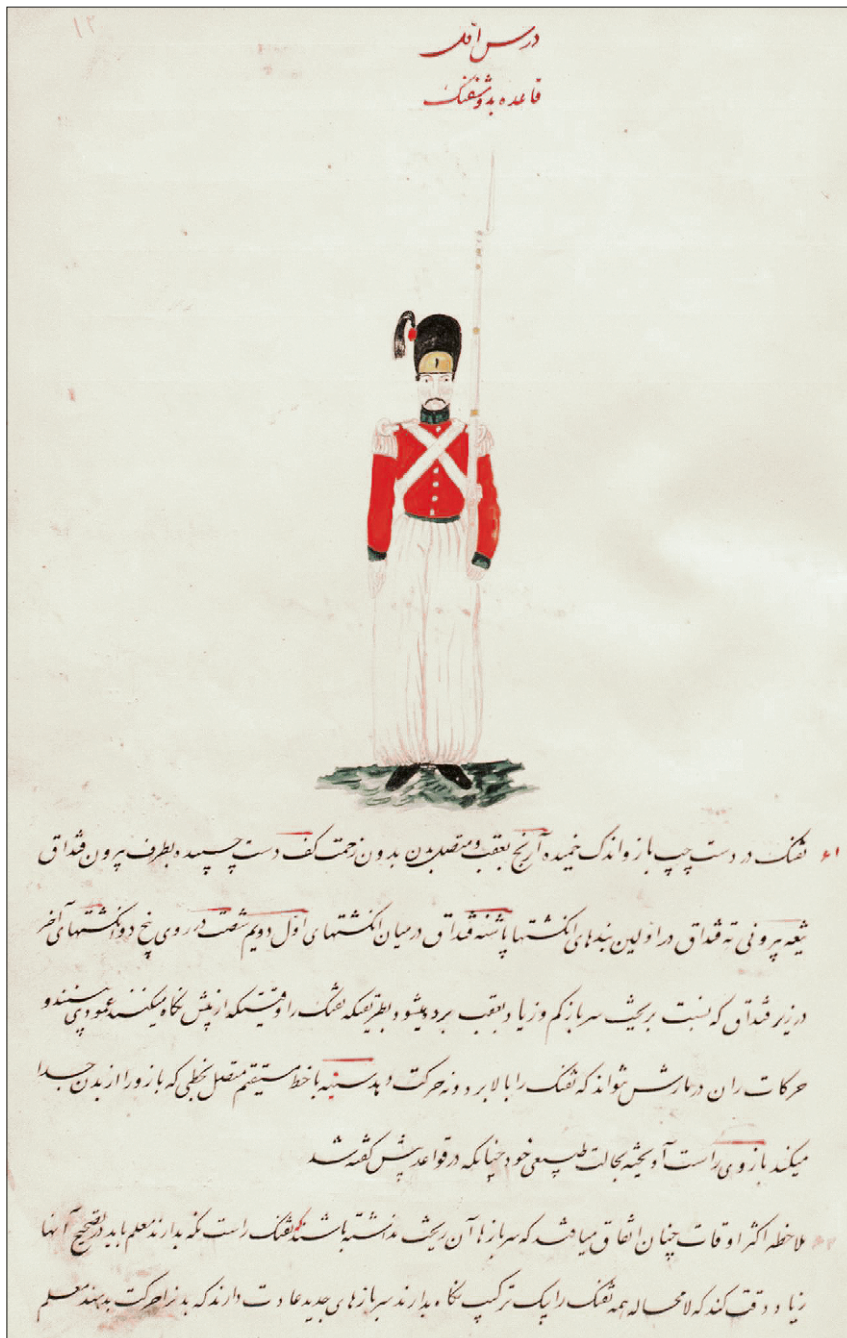 ۱۲
درس اول
قاعده بدوش تفنک
۶۱ تفنک در دست چپ بازو اندک خمیده آرنج بعقب و متصل ببدن بدون زحمت کف دست چسبیده بطرف بیرون قنداق
تیغه بیرونی ته قنداق در اولین بندهای انکشتها پاشنه قنداق در میان انکشتهای اول دویم شصت در روی پیچ دو انکشتهای آخر
در زیر قنداق که نسبت بریخت سرباز کم و زیاد بعقب برده میشود بطریقیکه تفنک را وقتیکه از پیش نکاه میکنند عمودی ببینند و
حرکات ران در مارش نتواند که تفنک را بالا برد و نه حرکت دهد سنبه با خط مستقیم متصل بخطی که بازو را از بدن جدا
میکند بازوی راست آویخته بحالت طبیعی خود چنانکه در قواعد پیش کفته شد
ملاحظه اکثر اوقات چنان اتفاق میافتد که سربازها آن ریخت نداشته باشند که تفنک راست نکه بدارند معلم باید در تصحیح آنها
زیاد دقت کند که لامحاله همه تفنک را یک ترکیب نکاه بدارند سربازهای جدید عادت دارند که بد نرا حرکت بدهند معلم